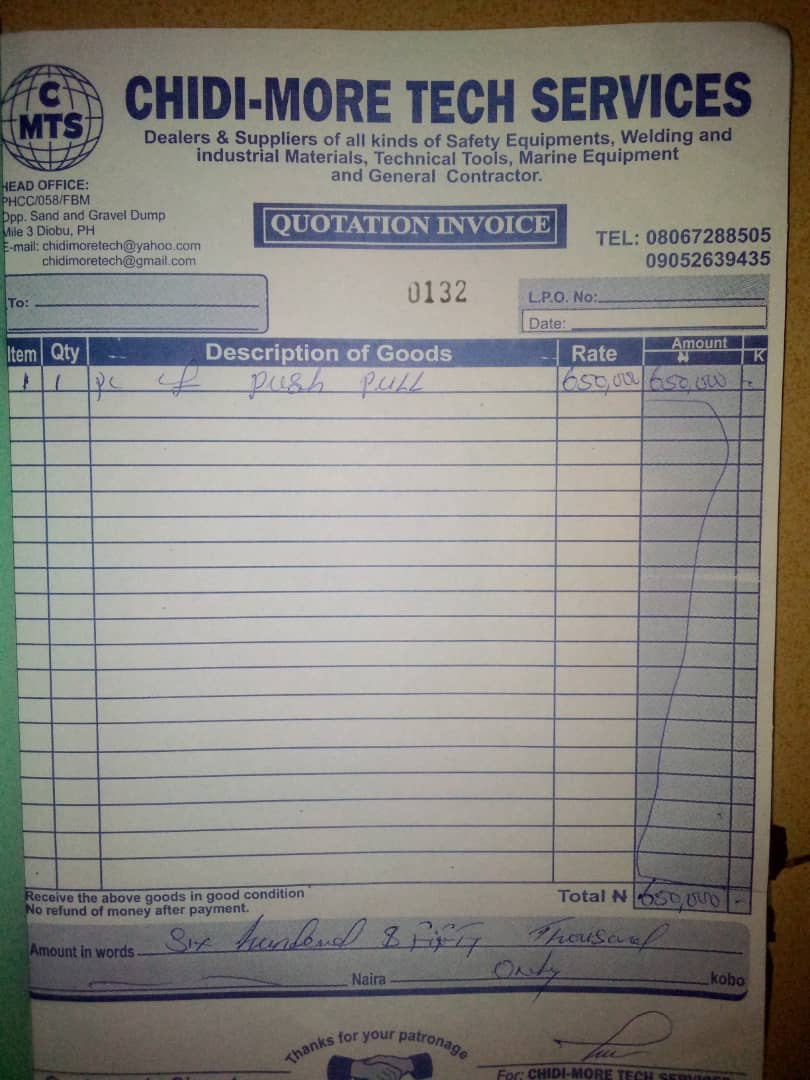 C
MTS
CHIDI-MORE TECH SERVICES
Dealers & Suppliers of all kinds of Safety Equipments, Welding and
industrial Materials, Technical Tools, Marine Equipment
and General Contractor.
HEAD OFFICE:
PHCC/058/FBM
Opp. Sand and Gravel Dump
Mile 3 Diobu, PH
E-mail: chidimoretech@yahoo.com
chidimoretech@gmail.com
QUOTATION INVOICE
TEL: 08067288505
09052639435
To:
0132
L.P.O. No:
Date:
Item Qty Description of Goods Rate Amount ₦ K
1 1 pc of push pull 650,000 650,000 -
Receive the above goods in good condition
No refund of money after payment.
Total ₦ 650,000 -
Amount in words Six hundred & Fifty Thousand
Naira Only kobo
Thanks for your patronage
For: CHIDI-MORE TECH SERVICES